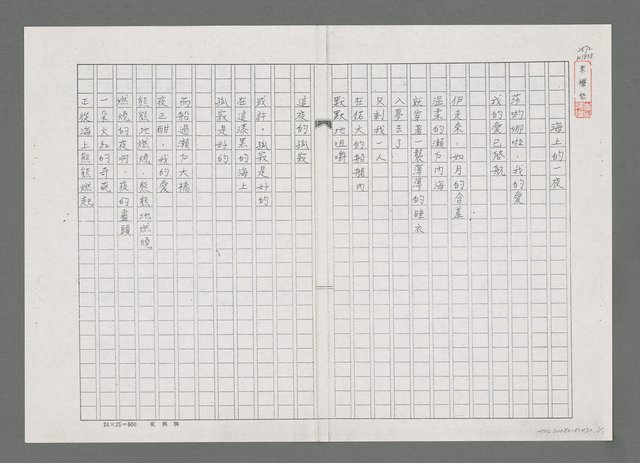 海上的一夜
莎喲娜啦，我的愛
我的愛已啓航
伊走來，如月的含羞
溫柔的瀨戶內海
就穿著一襲薄薄的睡衣
入夢去了
只剩我一人
在偌大的船艙內
默默地咀嚼
這夜的孤寂
或許，孤寂是好的
在這漆黑的海上
孤寂是好的
而船過瀨戶大橋
夜正酣，我的愛
熊熊地燃燒，熊熊地燃燒
燃燒的夜啊，夜的盡頭
一朵火紅的奇葩
正從海上熊熊燃起
24×25=600